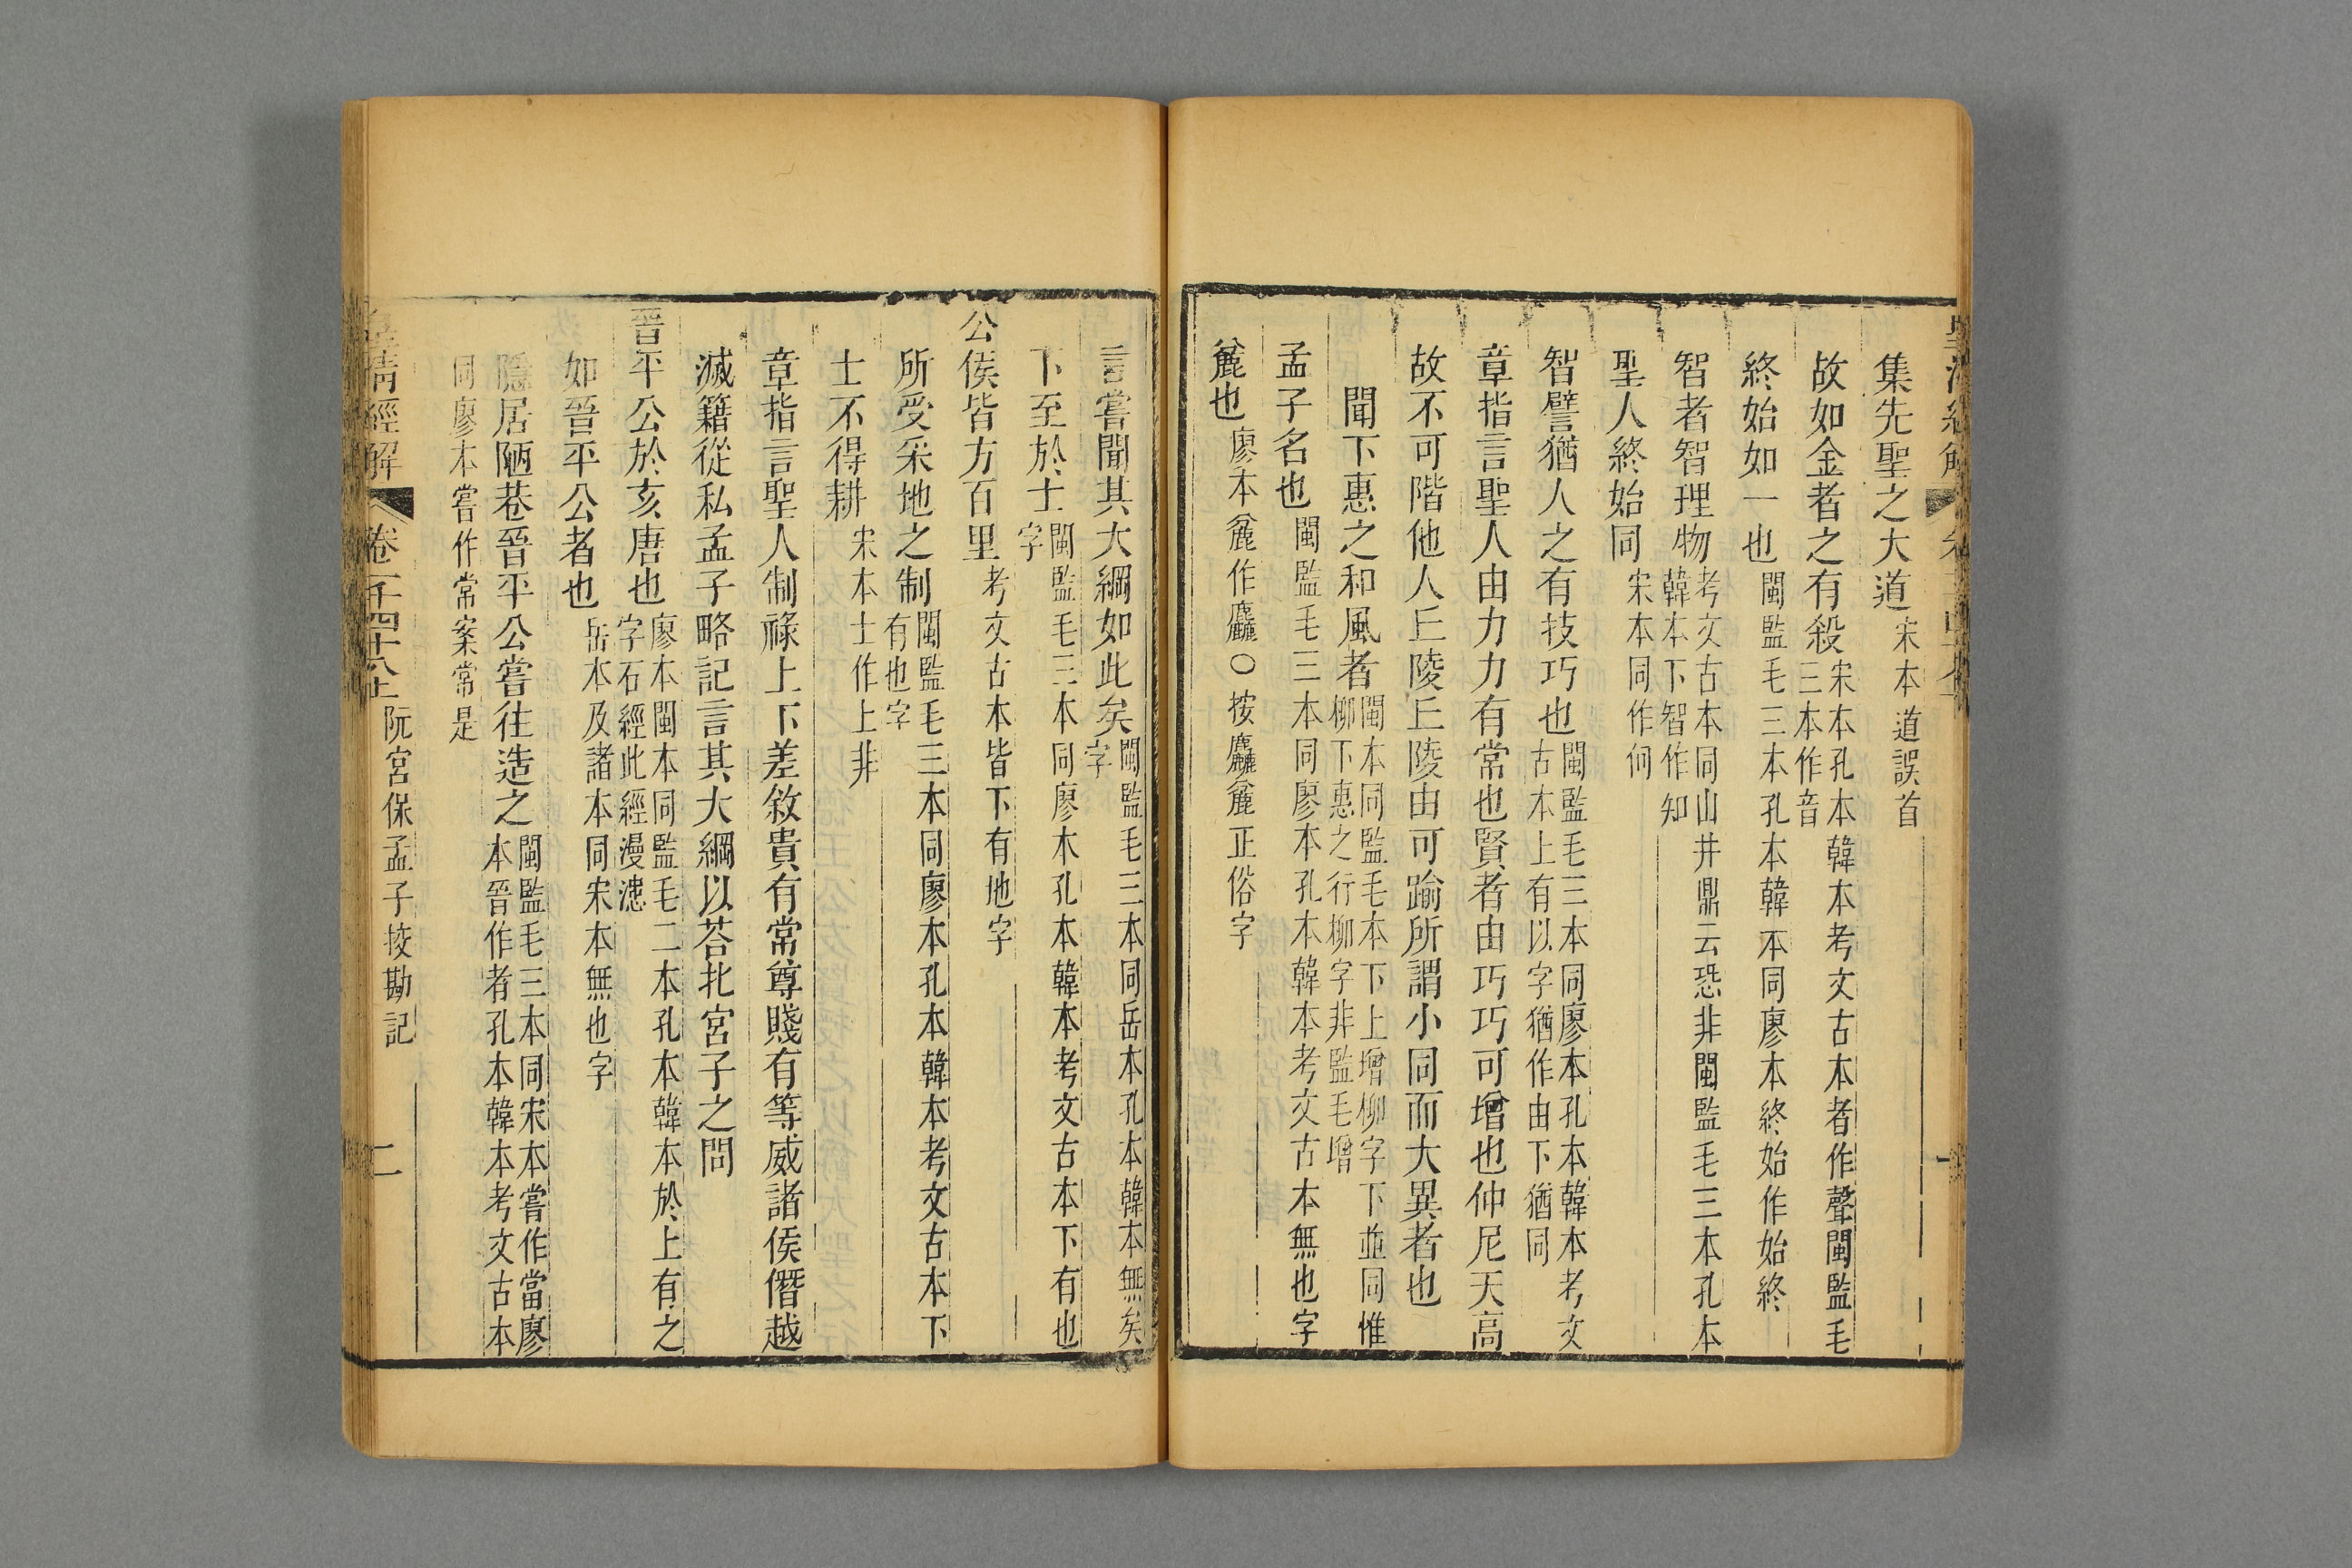 集先聖之大道宋本道誤首
故如金者之有殺宋本孔本韓本考文古本者作聲閩監毛三本作音
終始如一也閩監毛三本孔本韓本同廖本終始作始終
智者智理物考文古本同山井鼎云恐非閩監毛三本孔本韓本下智作知
聖人終始同宋本同作何
智譬猶人之有技巧也閩監毛三本同廖本孔本韓本考文古本上有以字猶作由下猶同
章指言聖人由力力有常也賢者由巧巧可增也仲尼天高
故不可階他人丘陵丘陵由可踰所謂小同而大異者也
聞下惠之和風者閩本同監毛本下上增柳字下並同惟柳下惠之行柳字非監毛增
孟子名也閩監毛三本同廖本孔本韓本考文古本無也字
麄也廖本麄作麤○按麤麄正俗字
言嘗聞其大綱如此矣閩監毛三本同岳本孔本韓本無矣字
下至於士閩監毛三本同廖本孔本韓本考文古本下有也字
公侯皆方百里考文古本皆下有地字
所受采地之制閩監毛三本同廖本孔本韓本考文古本下有也字
士不得耕宋本士作上非
章指言聖人制祿上下差敘貴有常尊賤有等威諸侯僭越
滅籍從私孟子略記言其大綱以荅北宮子之問
晉平公於亥唐也廖本閩本同監毛二本孔本韓本於上有之字石經此經漫漶
如晉平公者也岳本及諸本同宋本無也字
隱居陋巷晉平公嘗往造之閩監毛三本同宋本嘗作當廖本晉作者孔本韓本考文古本
同廖本嘗作常案常是
皇清經解 卷一千四十八上 阮宮保孟子挍勘記 二